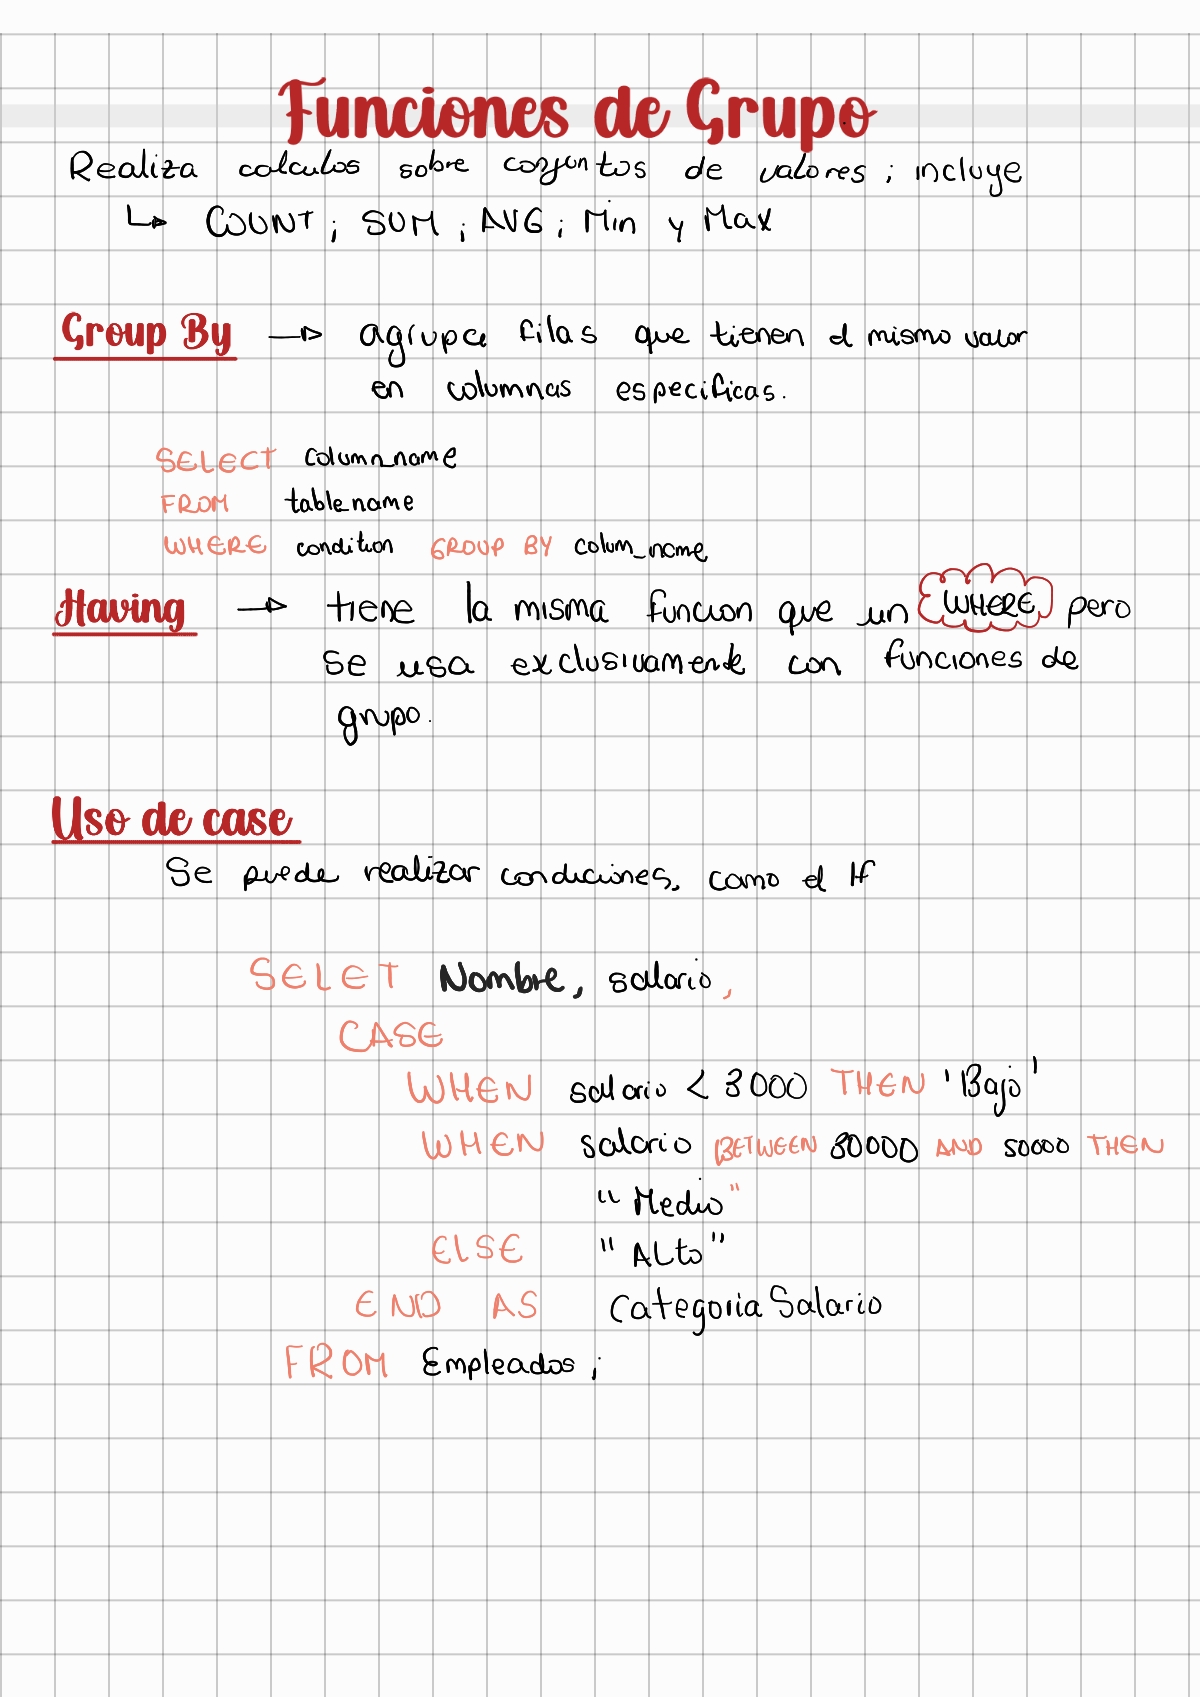 Funciones de Grupo
Realiza calculos sobre conjuntos de valores ; incluye
↳ COUNT ; SUM ; AVG ; Min y Max
Group By → agrupa filas que tienen el mismo valor
en columnas especificas.
SELECT column_name
FROM table_name
WHERE condition GROUP BY colum_name
Having → tiene la misma funcion que un WHERE pero
se usa exclusivamente con funciones de
grupo.
Uso de case
Se puede realizar condiciones, como el If
SELET Nombre, salario,
CASE
WHEN salario < 3000 THEN 'Bajo'
WHEN salario BETWEEN 30000 AND 50000 THEN
"Medio"
ELSE "ALto"
END AS Categoria Salario
FROM Empleados ;